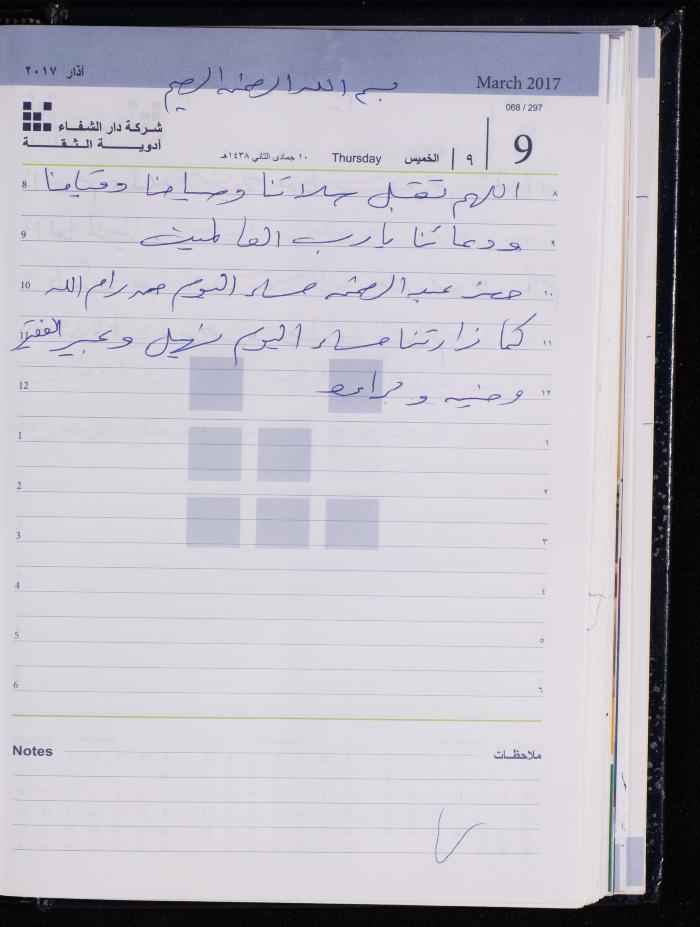 آذار ٢٠١٧
March 2017
بسم الله الرحمن الرحيم
068 / 297
شركة دار الشفاء
أدوية الثقة
9
٩
الخميس
Thursday
١٠ جمادى الثاني ١٤٣٨هـ
8 اللهم تقبل صلاتنا وصيامنا وقيامنا ٨
9 ودعائنا يا رب العالمين ٩
10 حضر عبد الرحمن مساء اليوم من رام الله ١٠
11 كما زارتنا مساء اليوم نهيل وعبير الفقير ١١
12 و ١٢
1 ١
2 ٢
3 ٣
4 ٤
5 ٥
6 ٦
Notes ملاحظات